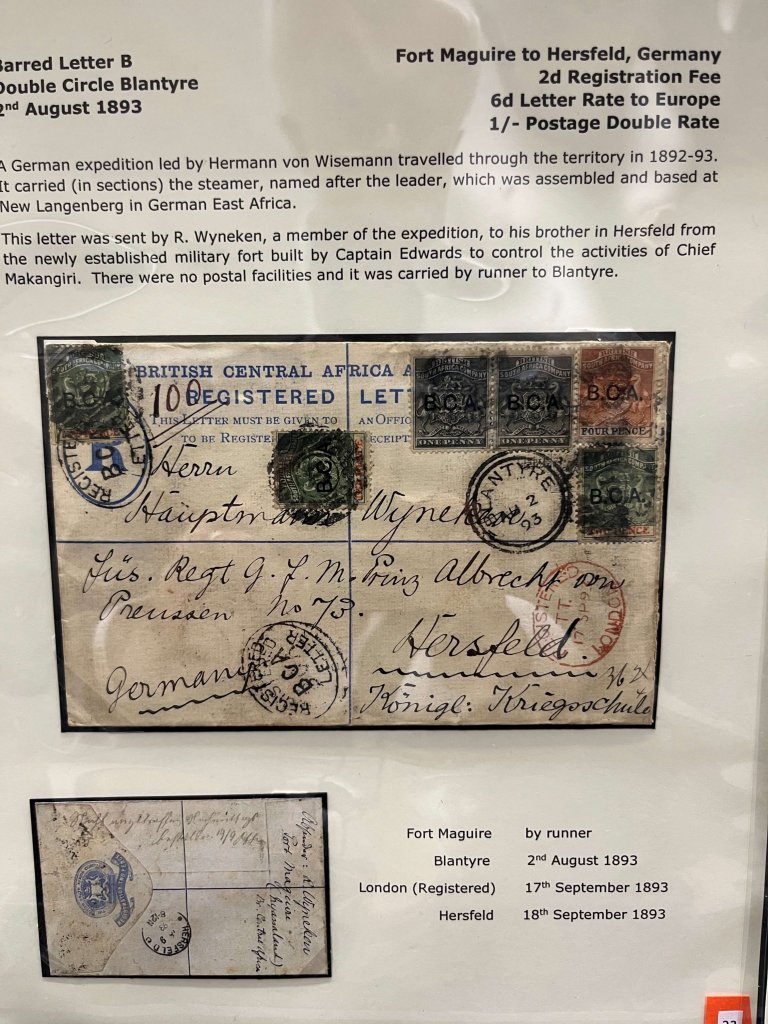 Barred Letter B
Double Circle Blantyre
2nd August 1893
Fort Maguire to Hersfeld, Germany
2d Registration Fee
6d Letter Rate to Europe
1/- Postage Double Rate
A German expedition led by Hermann von Wisemann travelled through the territory in 1892-93.
It carried (in sections) the steamer, named after the leader, which was assembled and based at
New Langenberg in German East Africa.
This letter was sent by R. Wyneken, a member of the expedition, to his brother in Hersfeld from
the newly established military fort built by Captain Edwards to control the activities of Chief
Makangiri. There were no postal facilities and it was carried by runner to Blantyre.
BRITISH CENTRAL AFRICA A
100 REGISTERED LET
THIS LETTER MUST BE GIVEN TO AN OFFIC
TO BE REGISTE RECEIPT
R
B.C.A.
B.C.A.
BRITISH
SOUTH AFRICA COMPANY
B.C.A.
ONE PENNY
BRITISH
SOUTH AFRICA COMPANY
B.C.A.
ONE PENNY
B.C.A.
FOUR PENCE
B.C.A.
REGISTE LETTER
BC
BLANTYRE
2
93
Herrn
Hauptmann Wyneken
Füs. Regt G. F. M. Prinz Albrecht von
Preussen No 73.
Hersfeld.
Germany
Königl: Kriegsschule
362
REGISTERED LETTER
BCA
REGISTERED
LONDON
17 SP 9
HERSFELD
Absender: R. Wyneken
Fort Maguire
(Nyassaland)
Br. Central Africa
Fort Maguire by runner
Blantyre 2nd August 1893
London (Registered) 17th September 1893
Hersfeld 18th September 1893